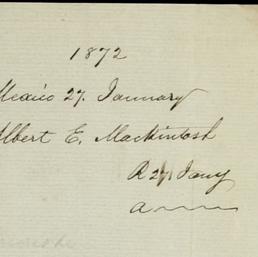 1872
Mexico 27. January
Albert E. Mackintosh
R 27 Jany
a